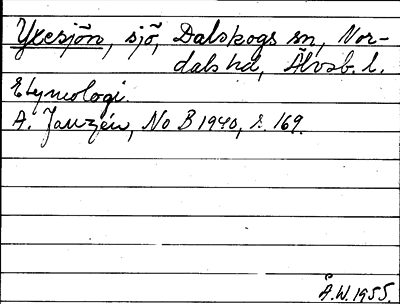 Yxesjön, sjö, Dalskogs sn, Nor-
dals hd, Älvsb. l.
Etymologi.
A. Janzén, No B 1940, s. 169.
Å.W. 1955.